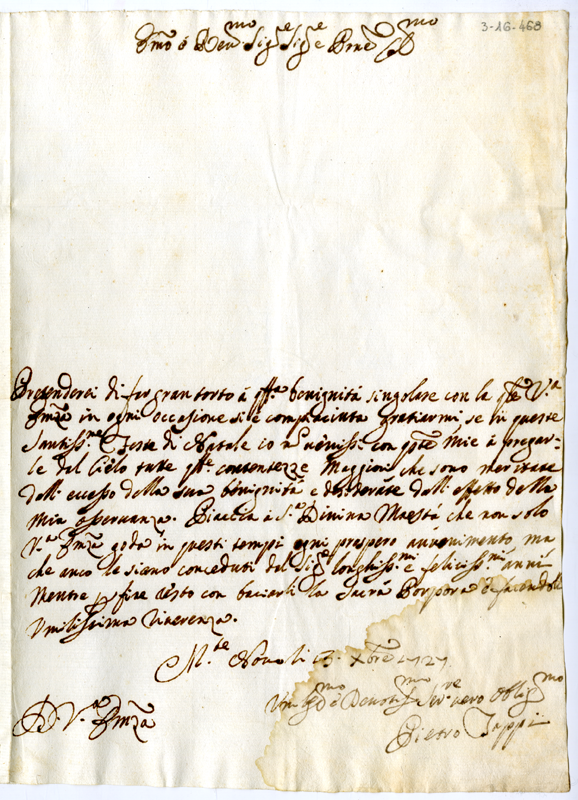 3-16-468
Emo é Reu.mo Sig.e Sig.e Prne
Pretenderei di far gran torto á qsta benignitá singolare con la qle V.a
Emza in ogni occasione si é compiaciuta gratiarmi se in queste
Santiss.me Feste di Natale io nõ uenissi con qste mie á pregar-
le dal Cielo tutte qlle contentezze Maggiori che sono meritate
dall' eccesso della sua benignitá e desiderate dall' effetto della
mia osseruanza. Piaccia á S.a Diuina Maestá che non solo
V.a Emza goda in questi tempi ogni prospero auuenimento ma
che anco le siano conceduti dal Sig.e longhiss.mi e feliciss.mi anni
Mentre p fine resto con baciarli la Sacra Porpora e facendoli
Vmilissima riuerenza.
M.te Nouo li 13. Xbre 1727
D. V.a Emza
Vm.mo é Deuotis.mo Ser.re uero Oblig.mo
Pietro Zappi